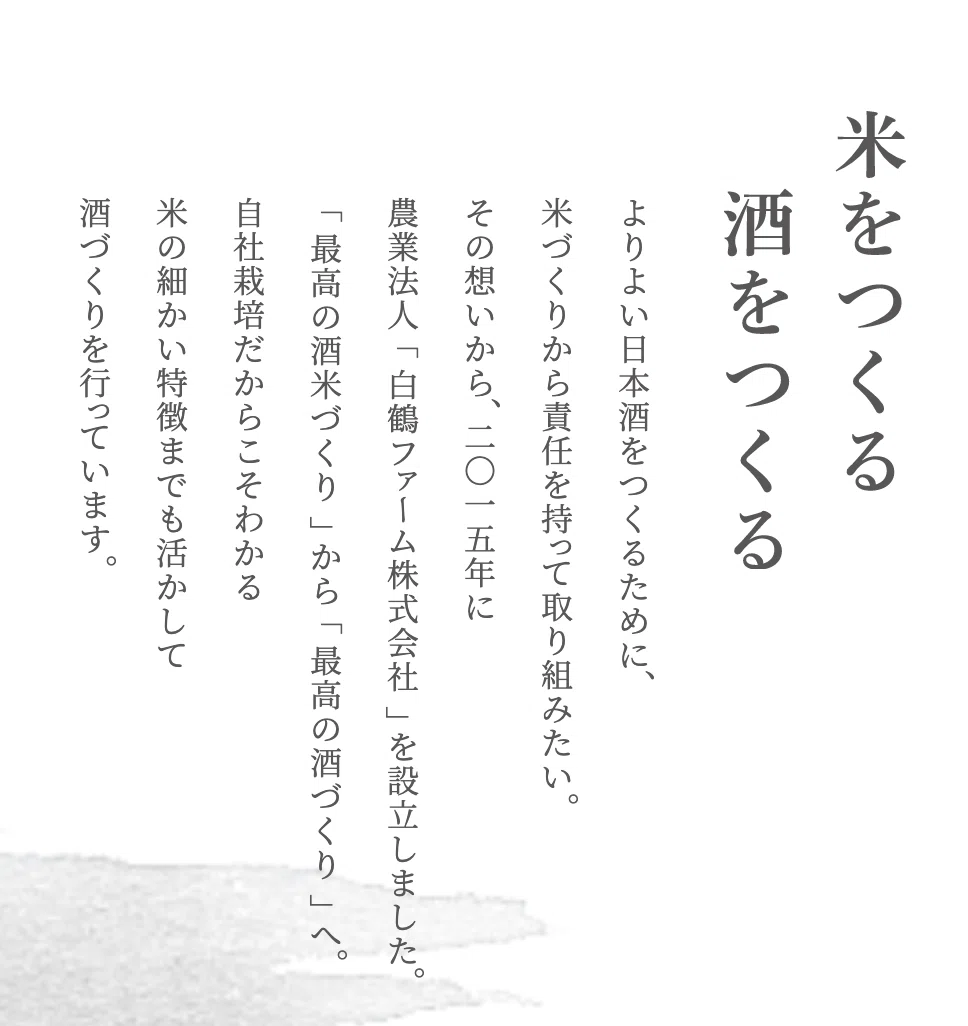 米をつくる
酒をつくる
よりよい日本酒をつくるために、
米づくりから責任を持って取り組みたい。
その想いから、二〇一五年に
農業法人「白鶴ファーム株式会社」を設立しました。
「最高の酒米づくり」から「最高の酒づくり」へ。
自社栽培だからこそわかる
米の細かい特徴までも活かして
酒づくりを行っています。